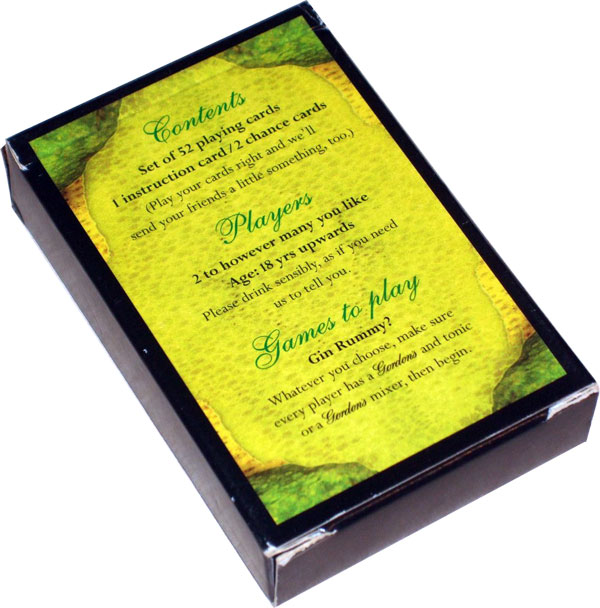 Contents
Set of 52 playing cards
1 instruction card / 2 chance cards
(Play your cards right and we'll
send your friends a little something, too.)
Players
2 to however many you like
Age: 18 yrs upwards
Please drink sensibly, as if you need
us to tell you.
Games to play
Gin Rummy?
Whatever you choose, make sure
every player has a Gordons and tonic
or a Gordons mixer, then begin.